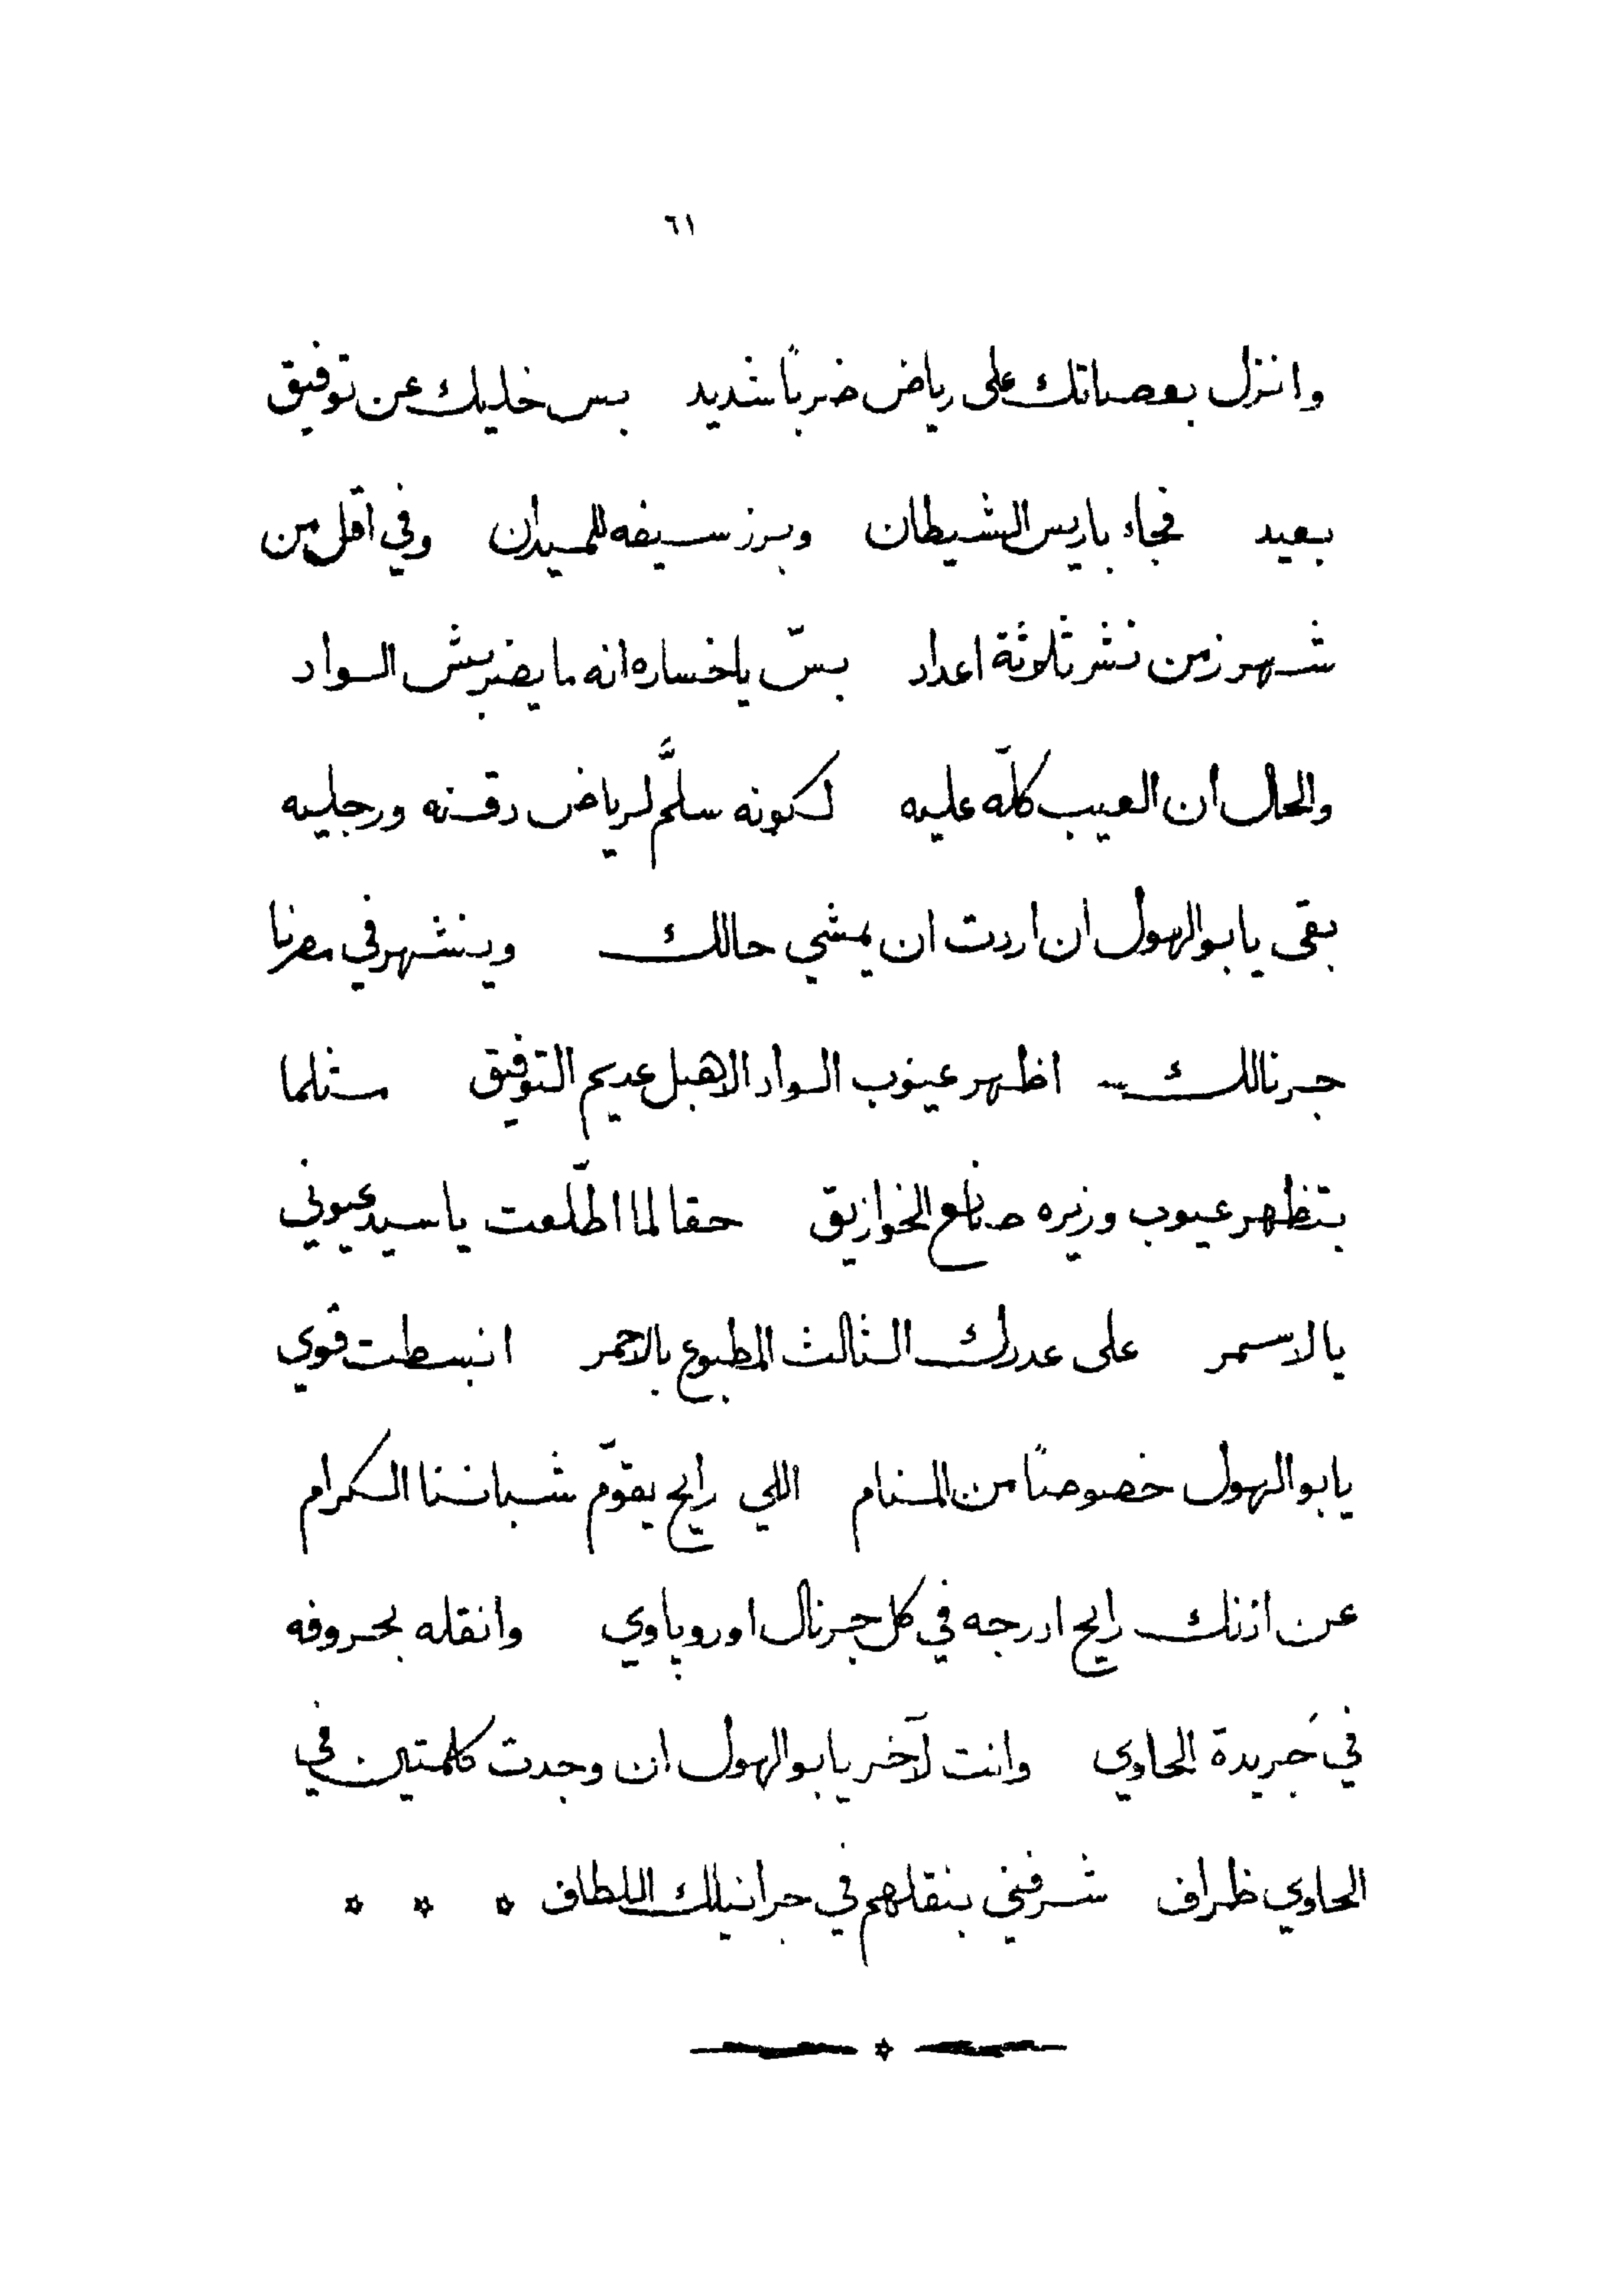 ٦١
وانزل بعصاتك على رياض ضربًا شديد بس خليك عن توفيق
بعيد فجاء باريس الشيطان وبرز سيفه للميدان وفي اقل من
شهر زمن نشر ثلاثة اعداد بسّ ياخساره انه ما يضربش الواد
والحال أن العيب كلّه عليه لكونه سلَّم لرياض دقنه ورجليه
بقى يابو الهول ان اردت ان يمشي حالك وينشهر في مصرنا
جرنالك اظهر عيوب الواد الاهبل عديم التوفيق مثلما
بتظهر عيوب وزيره صانع الخوازيق حقا لما اطّلعت ياسيد عيوني
يالاسمر على عددك الثالث المطبوع بالاحمر انبسطت قوي
يابو الهول خصوصًا من المنام اللي رايح يقوّم شباننا الكرام
عن اذنك رايح ادرجه في كل جرنال اوروپاوي وانقله بحروفه
في جَريدة الحاوي وانت لآخر يابو الهول ان وجدت كلمتين في
الحاوي ظراف شرفني بنقلهم في جرانيلك اللطاف * * *